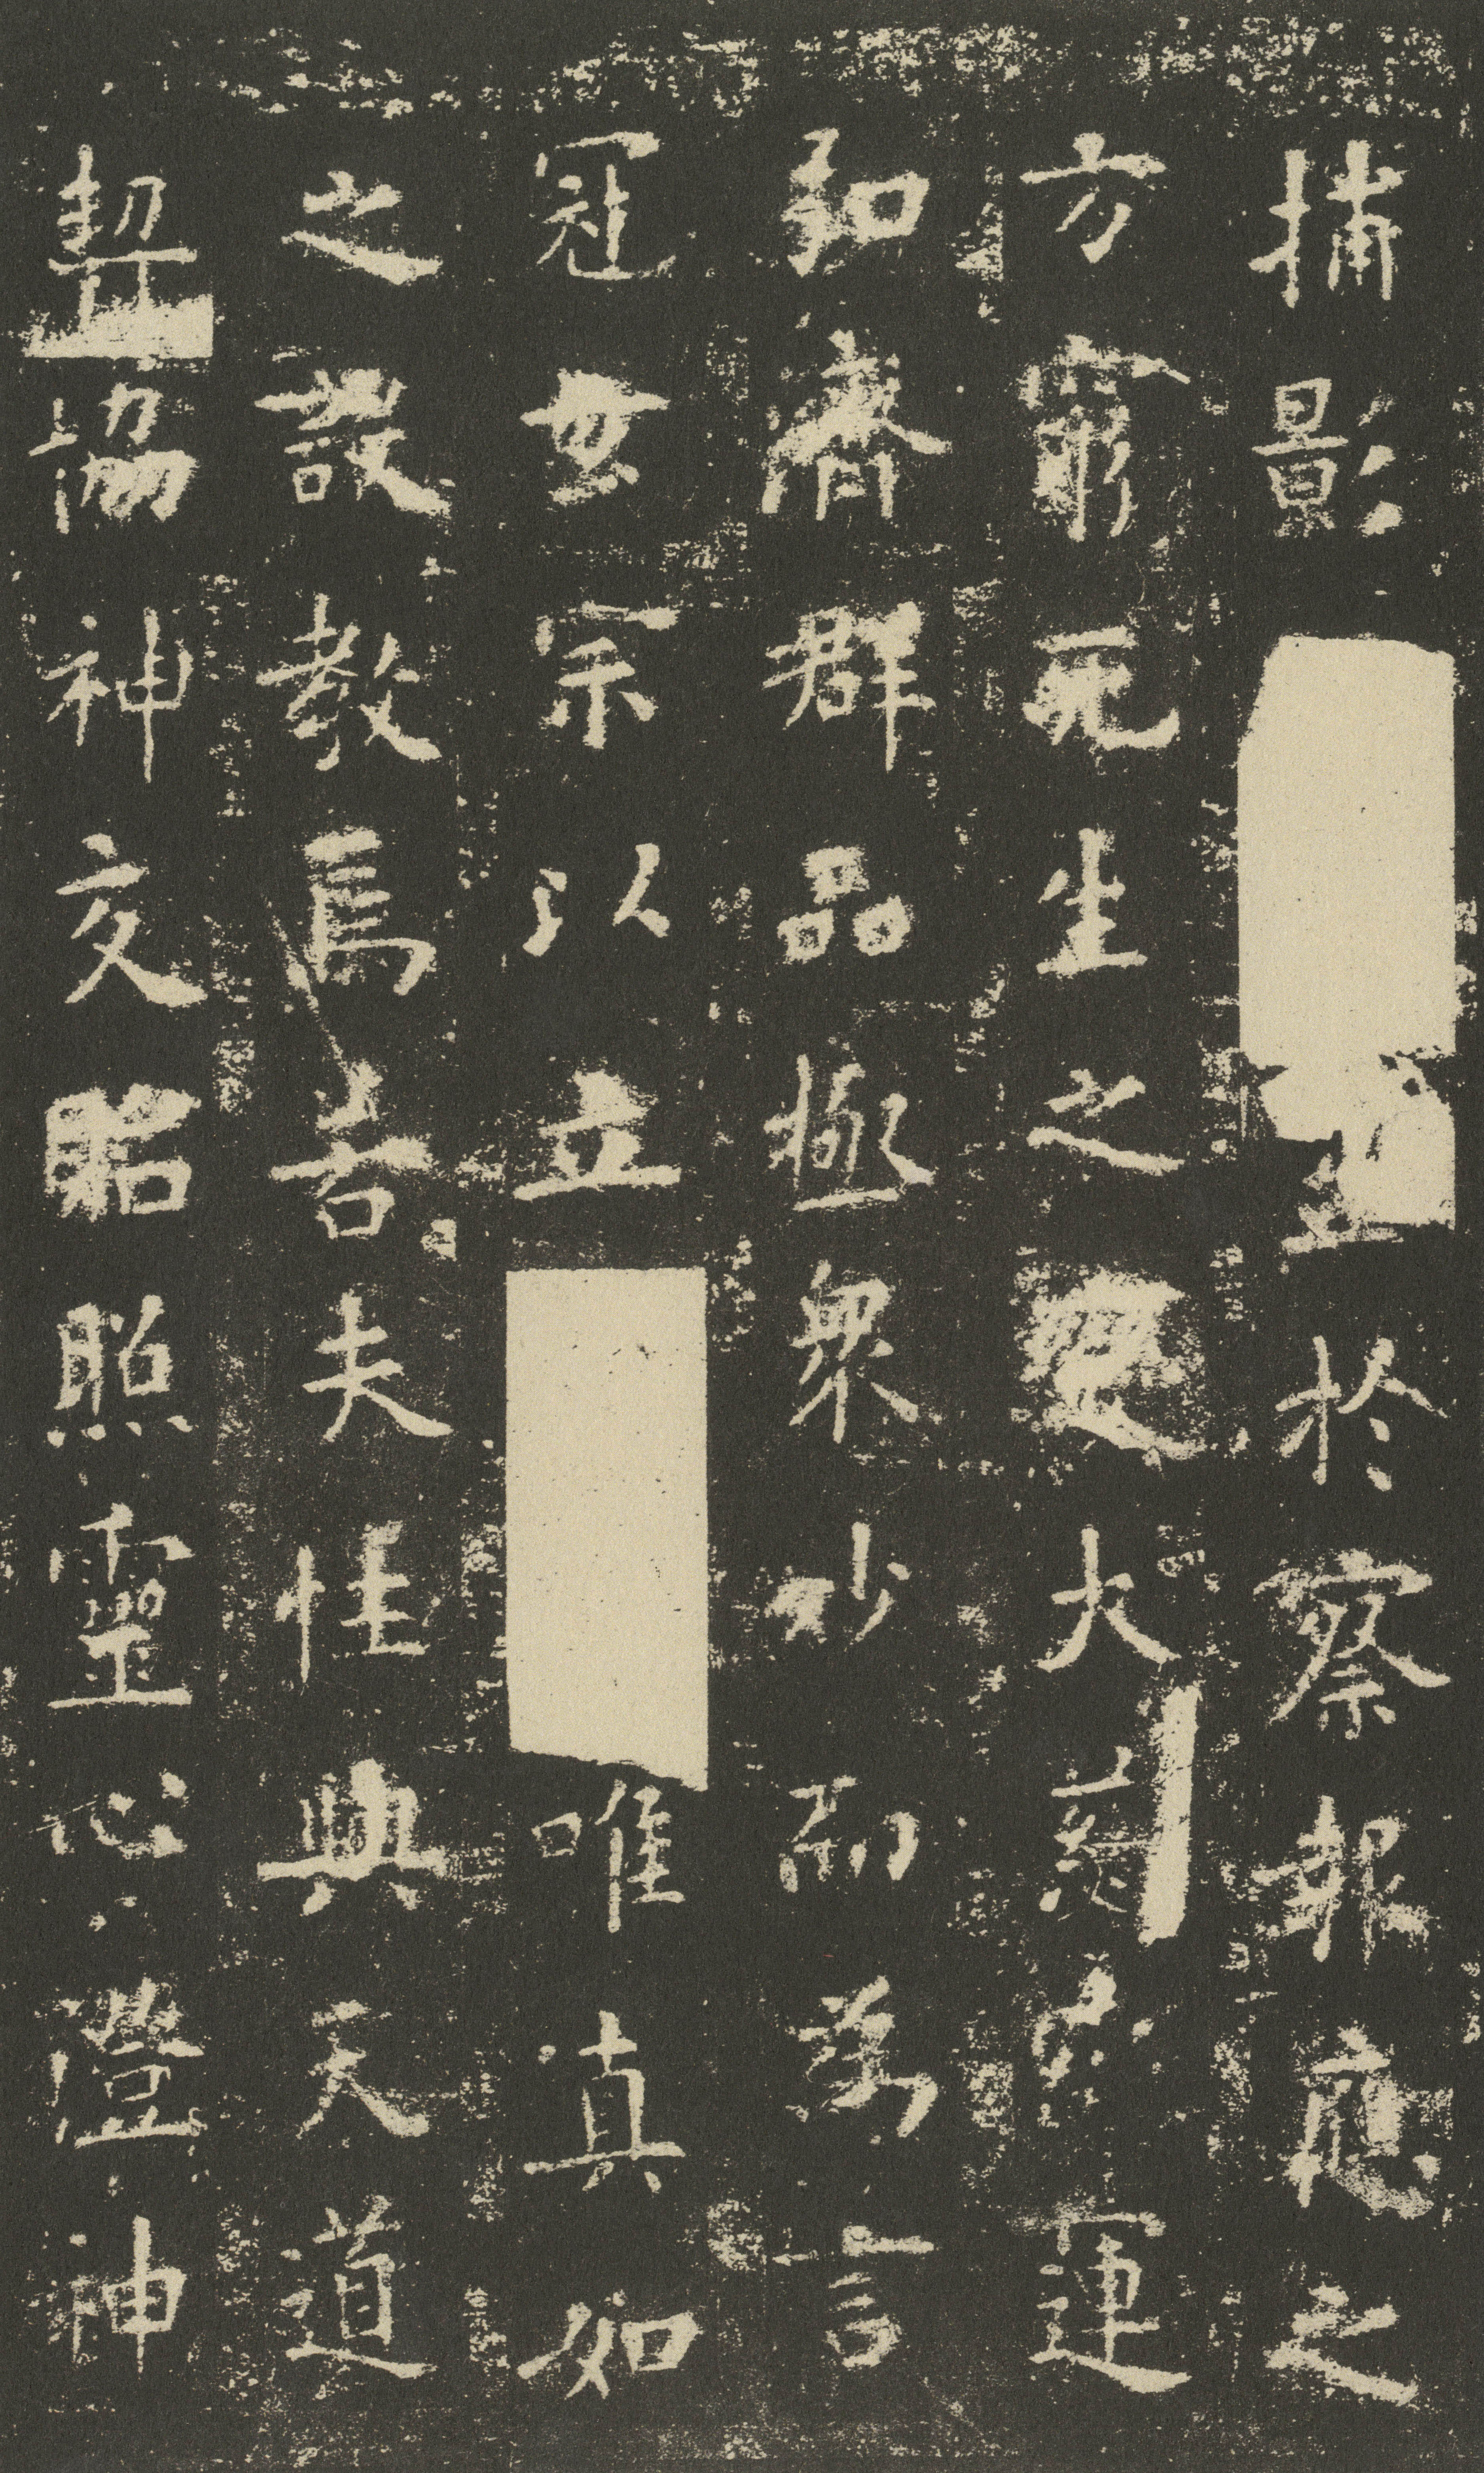 捕影於察報應之
方窮死生之變大慈運
弘濟群品極眾妙而為言
冠宗以立唯真如
之設教焉若夫性與天道
契協神交昭照靈心澄神